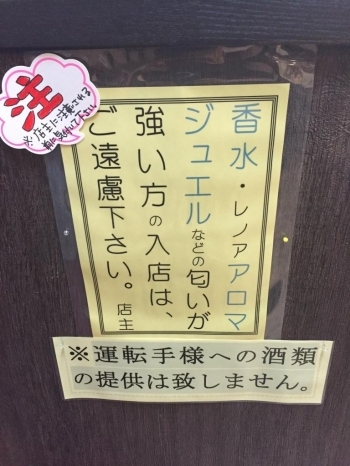 注
※店主に注意される
香水・レノアアロマ
ジュエルなどの匂いが
強い方の入店は、
ご遠慮下さい。店主
※運転手様への酒類
の提供は致しません。